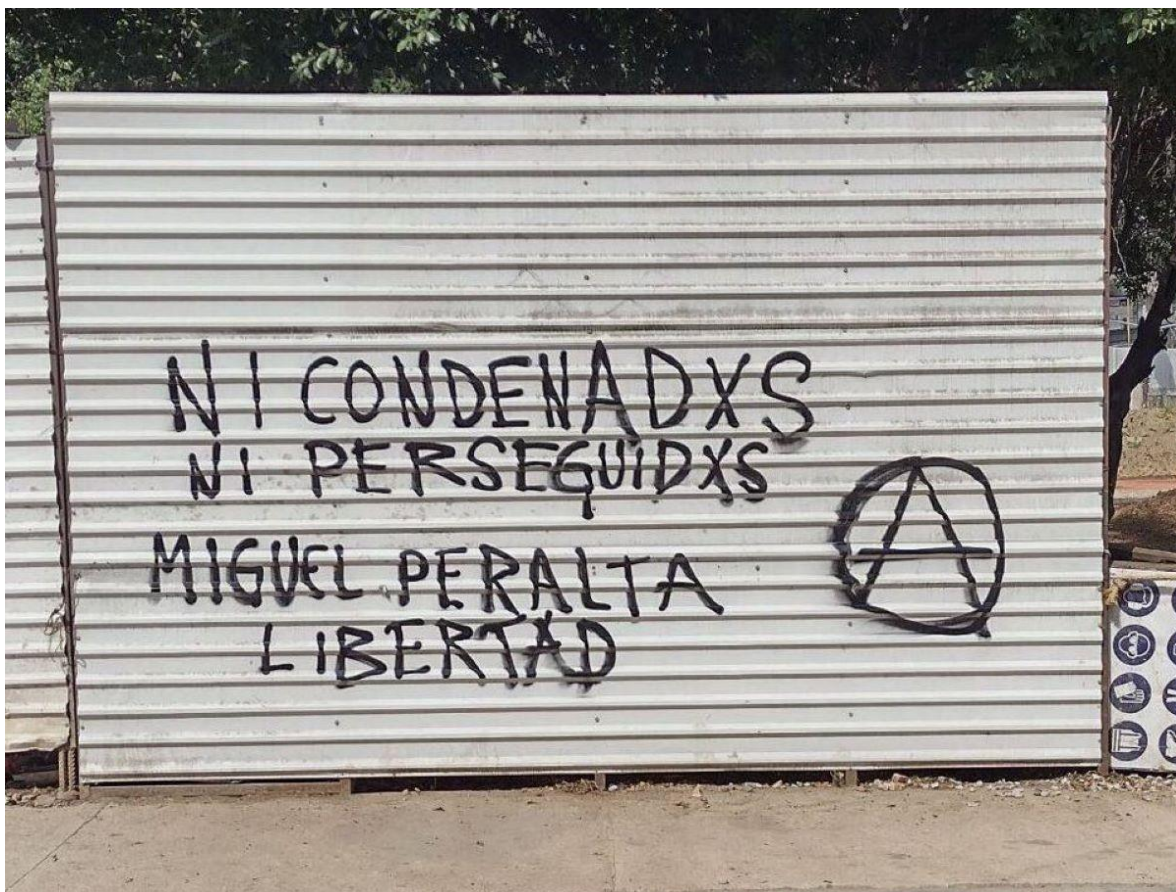 NI CONDENADXS
NI PERSEGUIDXS
MIGUEL PERALTA
LIBERTAD
A